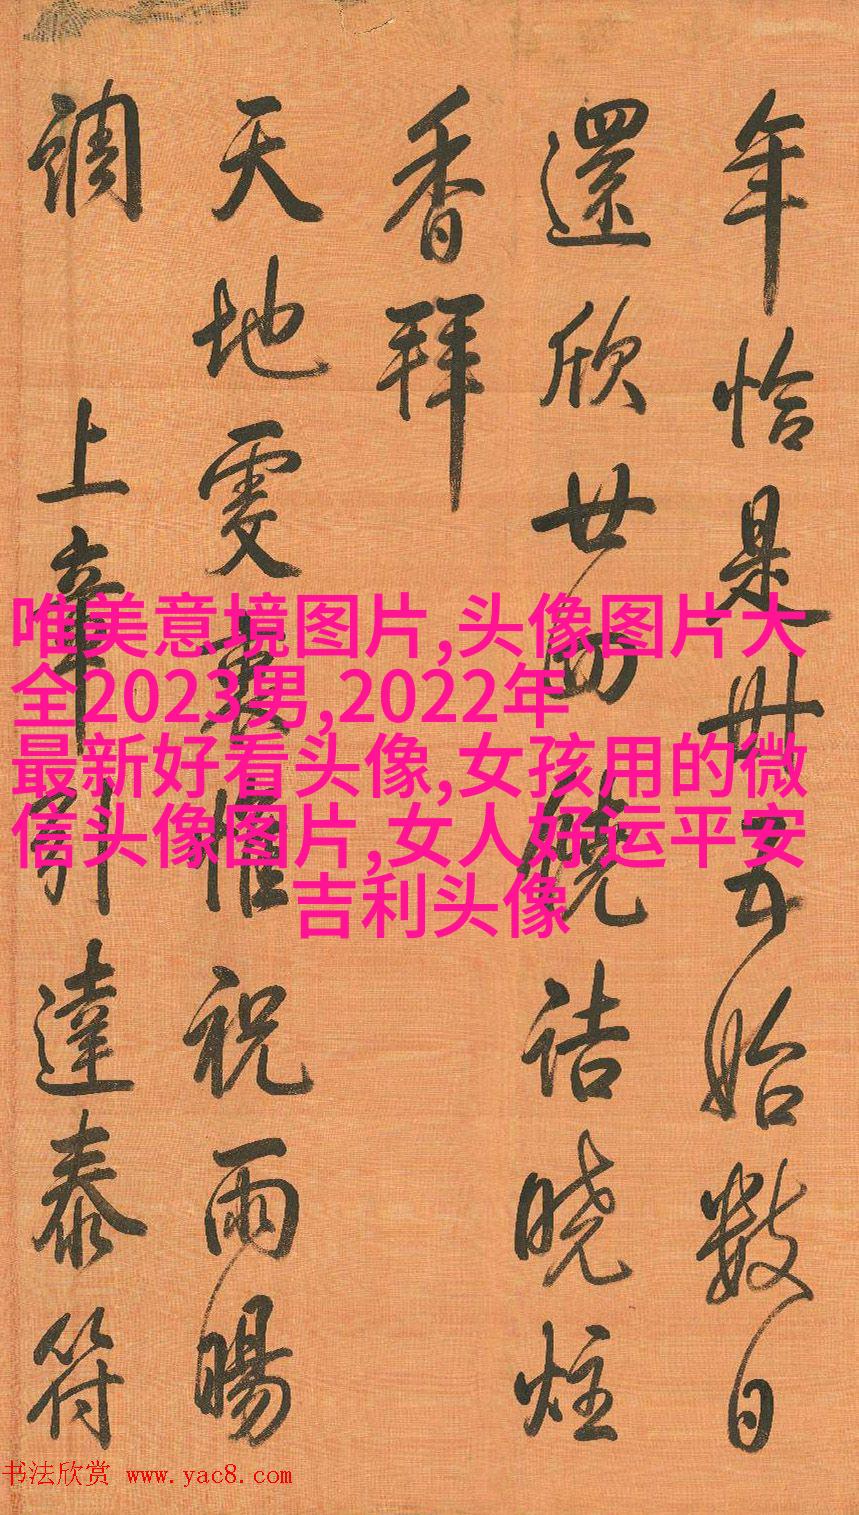 年恰是卅五始數日
還欣廿四饒詰曉炷
香拜
天地虔衷惟祝雨暘
調 上章引達泰符
唯美意境图片,头像图片大
全2023男,2022年
最新好看头像,女孩用的微
信头像图片,女人好运平安
吉利头像
书法欣赏 www.yac8.com